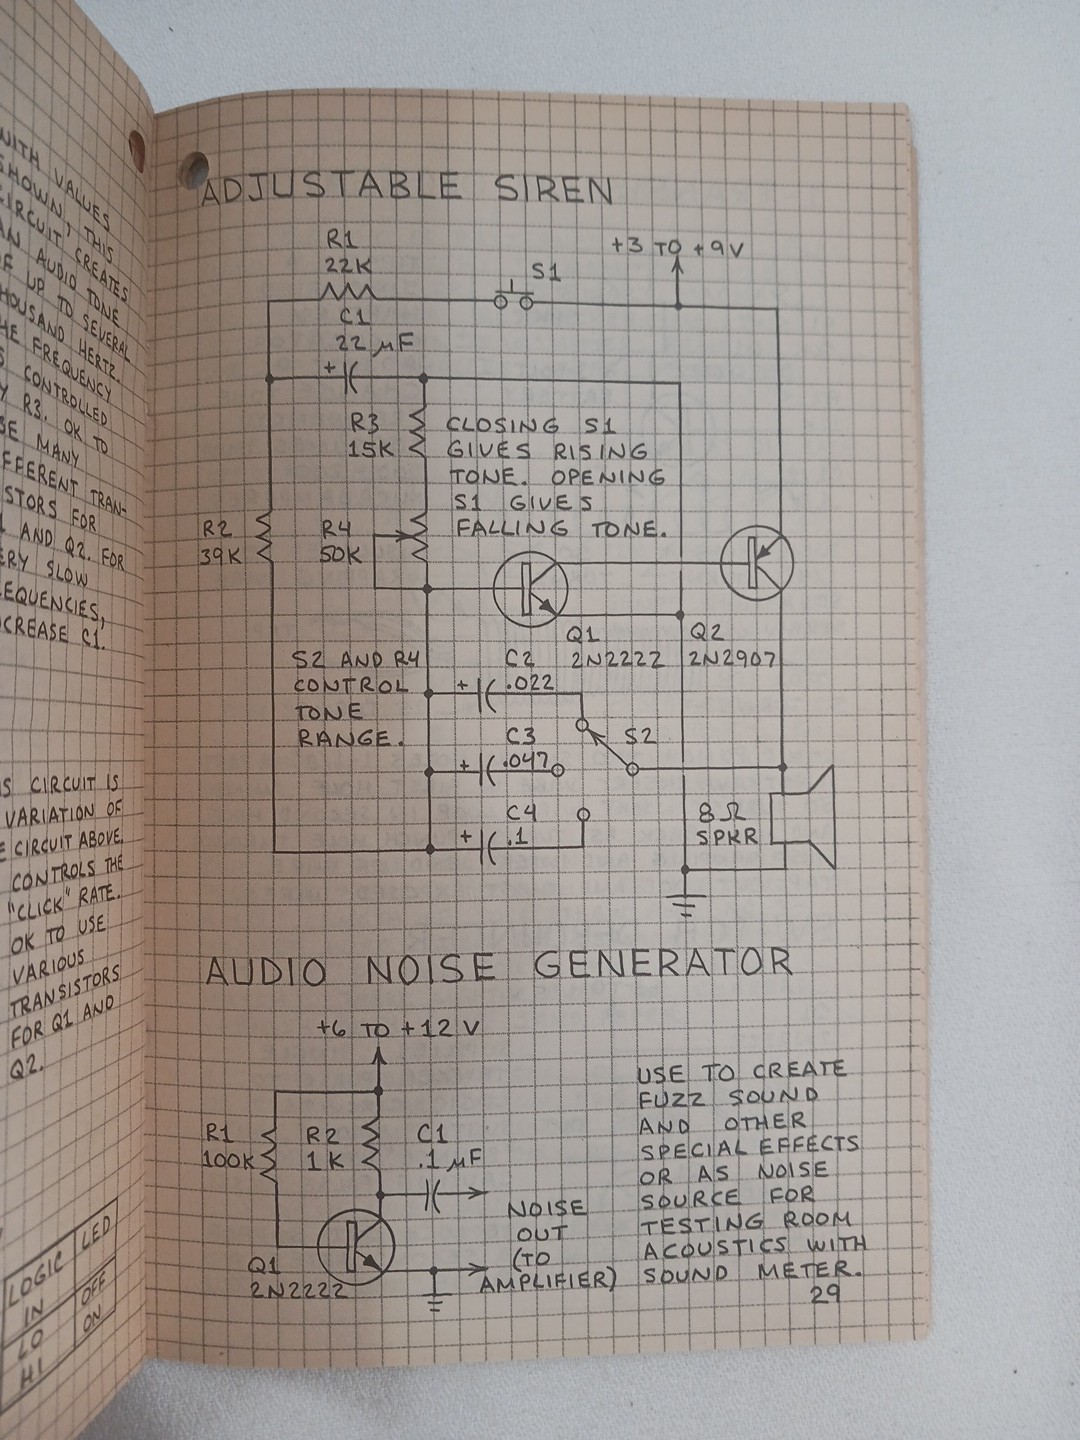 WITH VALUES
SHOWN, THIS
CIRCUIT CREATES
AN AUDIO TONE
OF UP TO SEVERAL
THOUSAND HERTZ.
THE FREQUENCY
IS CONTROLLED
BY R3. OK TO
USE MANY
DIFFERENT TRAN-
SISTORS FOR
Q1 AND Q2. FOR
VERY SLOW
FREQUENCIES,
INCREASE C1.
THIS CIRCUIT IS
VARIATION OF
THE CIRCUIT ABOVE.
CONTROLS THE
"CLICK" RATE.
OK TO USE
VARIOUS
TRANSISTORS
FOR Q1 AND
Q2.
LOGIC LED
IN
LO OFF
HI ON
ADJUSTABLE SIREN
R1
22K
S1
+3 TO +9V
C1
22 µF
+
R3
15K
CLOSING S1
GIVES RISING
TONE. OPENING
S1 GIVES
FALLING TONE.
R2
39K
R4
50K
Q1
2N2222
Q2
2N2907
S2 AND R4
CONTROL
TONE
RANGE.
C2
+ .022
S2
C3
+ .047
C4
+ .1
8Ω
SPKR
AUDIO NOISE GENERATOR
+6 TO +12V
R1
100K
R2
1K
C1
.1 µF
Q1
2N2222
NOISE
OUT
(TO
AMPLIFIER)
USE TO CREATE
FUZZ SOUND
AND OTHER
SPECIAL EFFECTS
OR AS NOISE
SOURCE FOR
TESTING ROOM
ACOUSTICS WITH
SOUND METER.
29